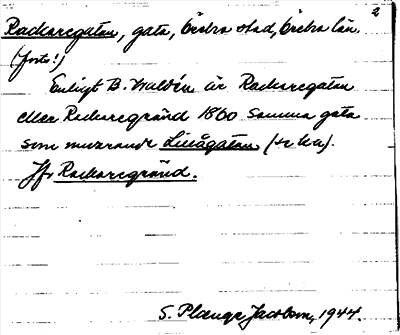 2
Rackaregatan, gata, Örebro stad, Örebro län.
(forts!)
Enligt B. Waldén är Rackaregatan
eller Rackaregränd 1860 samma gata
som nuvarande Lillågatan (se d.o.).
Jfr Rackaregränd.
S. Plœnge Jacobson, 1944.